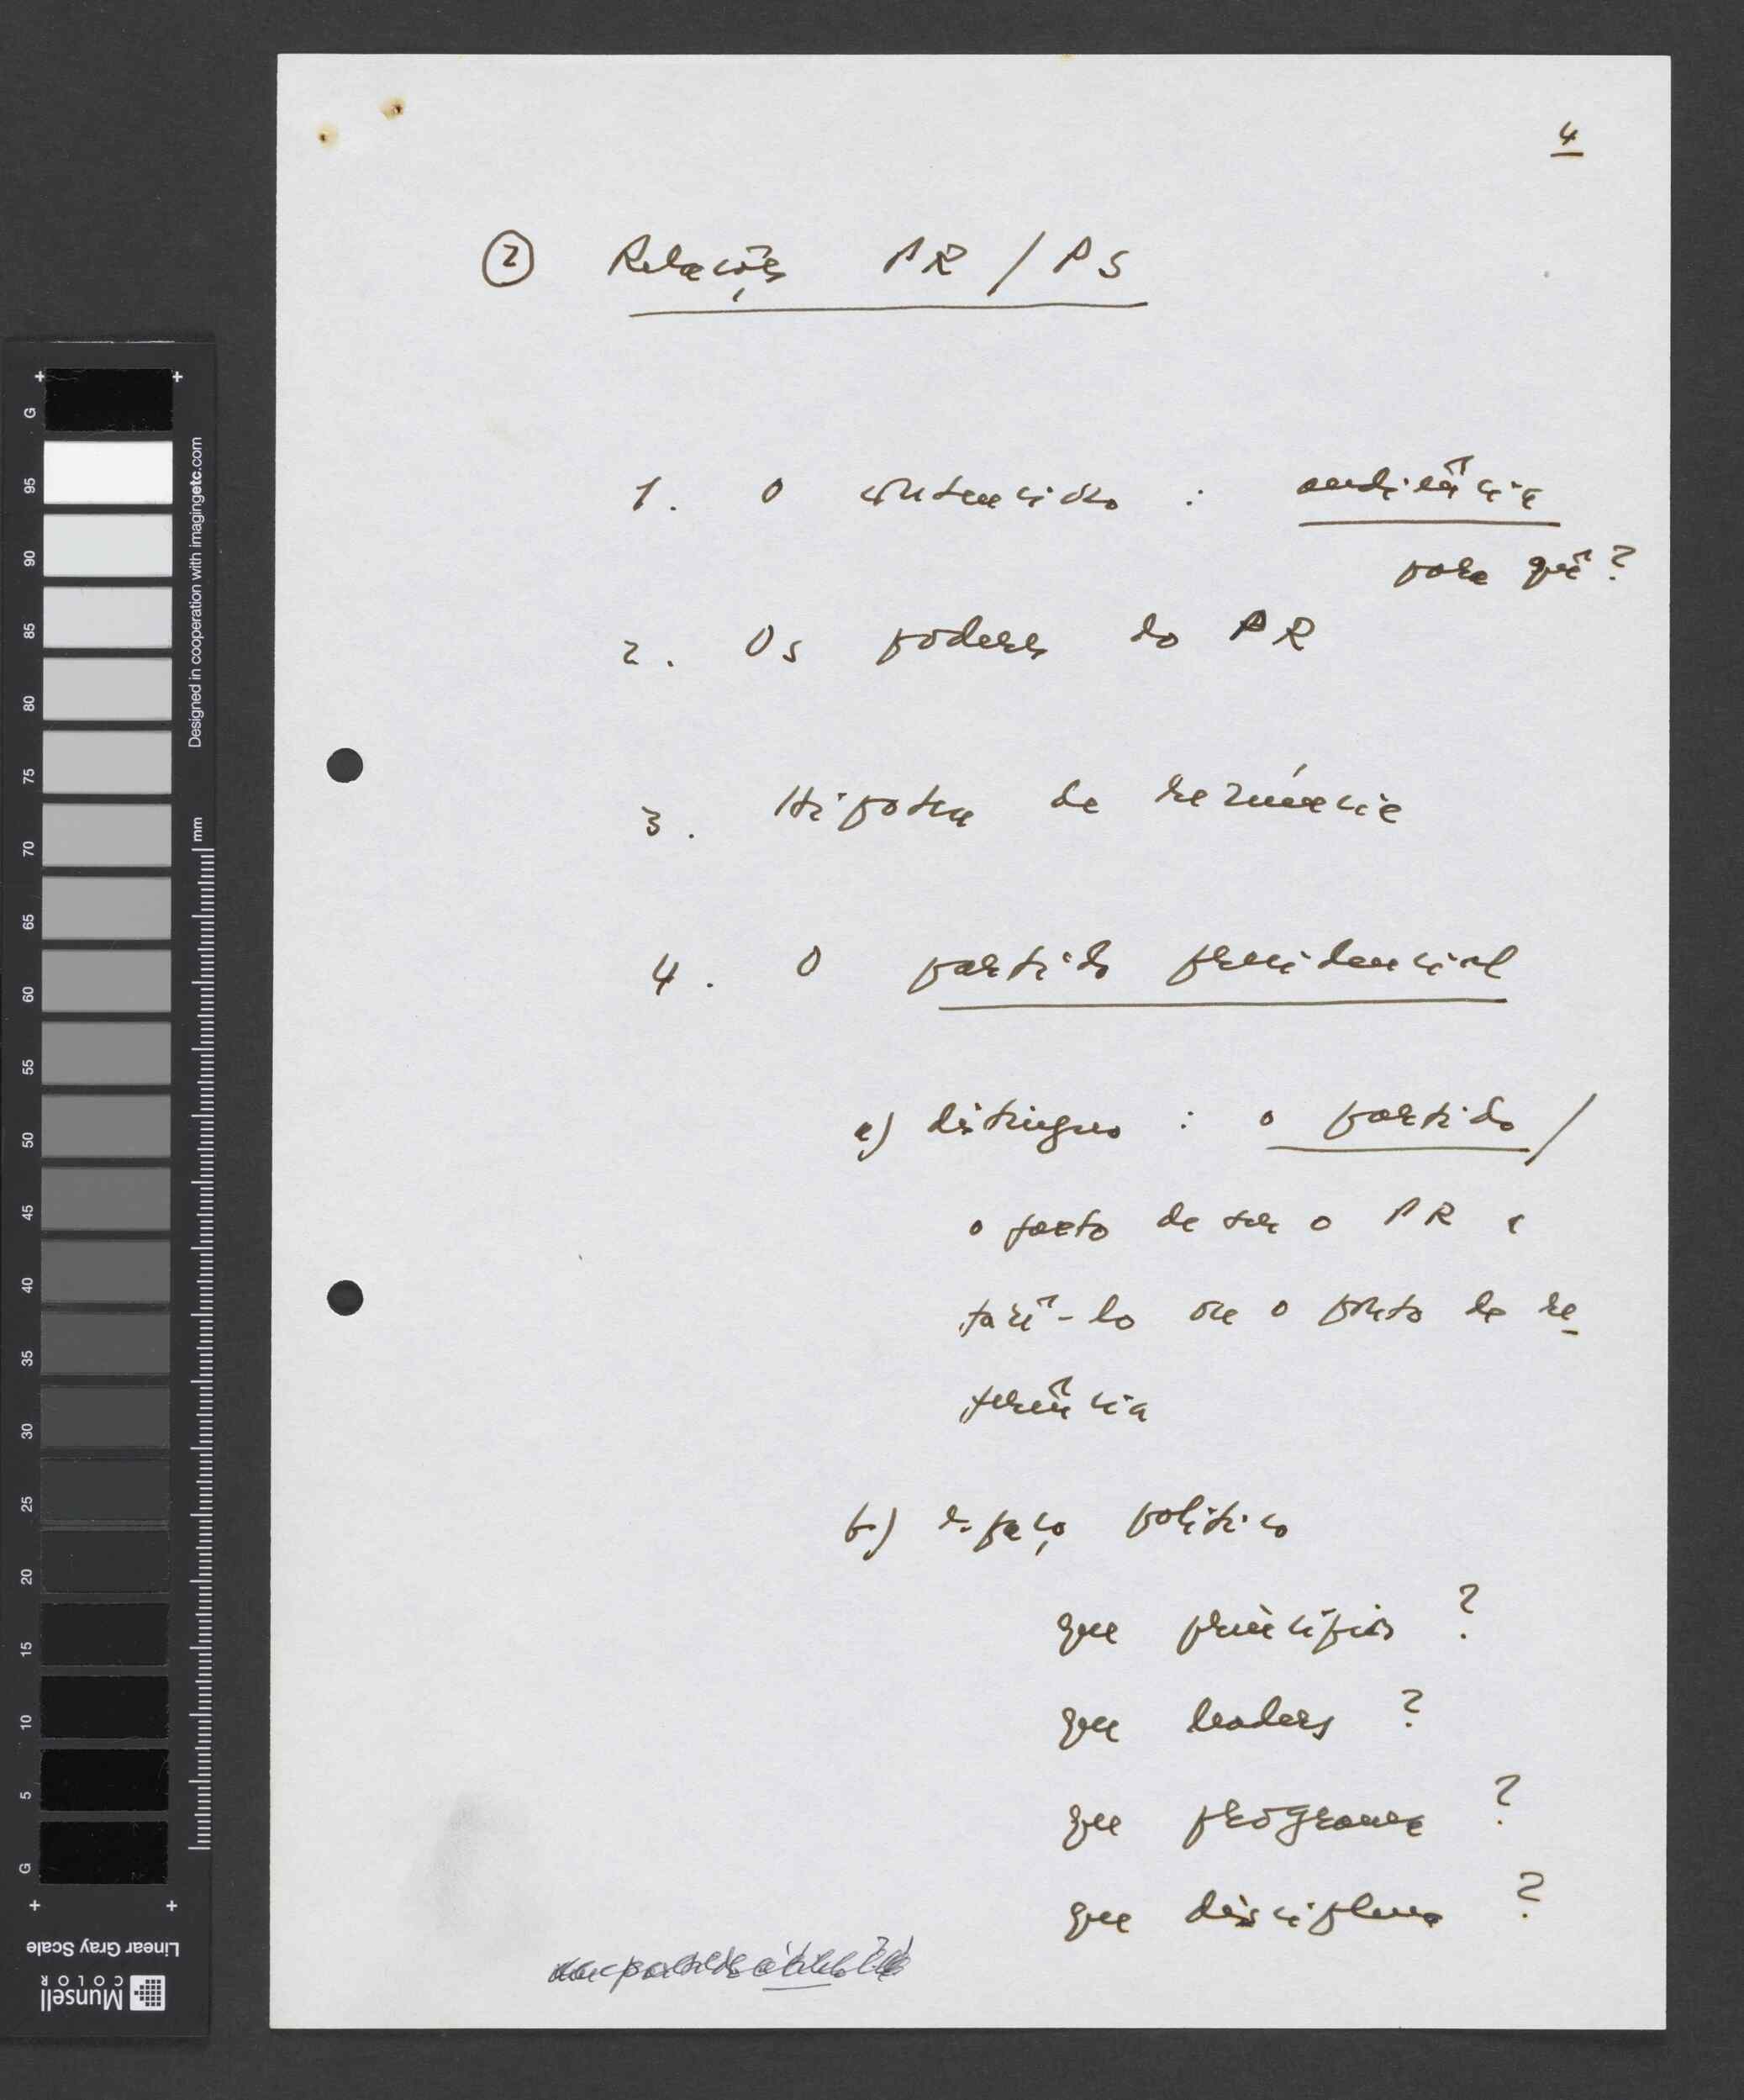 4
② Relações PR / PS
1. O contencioso : audiência
para quê ?
2. Os poderes do PR
3. Hipótese de renúncia
4. O partido presidencial
a) distinguo : o partido /
o facto de ser o PR a
fazê-lo ou o ponto de re
ferência
b) espaço político
que princípios ?
que leaders ?
que programa ?
que disciplina ?
G
95
90
85
80
75
70
65
60
55
50
45
40
35
30
25
20
15
10
5
G
Designed in cooperation with imagingetc.com
mm
Linear Gray Scale
Munsell
COLOR